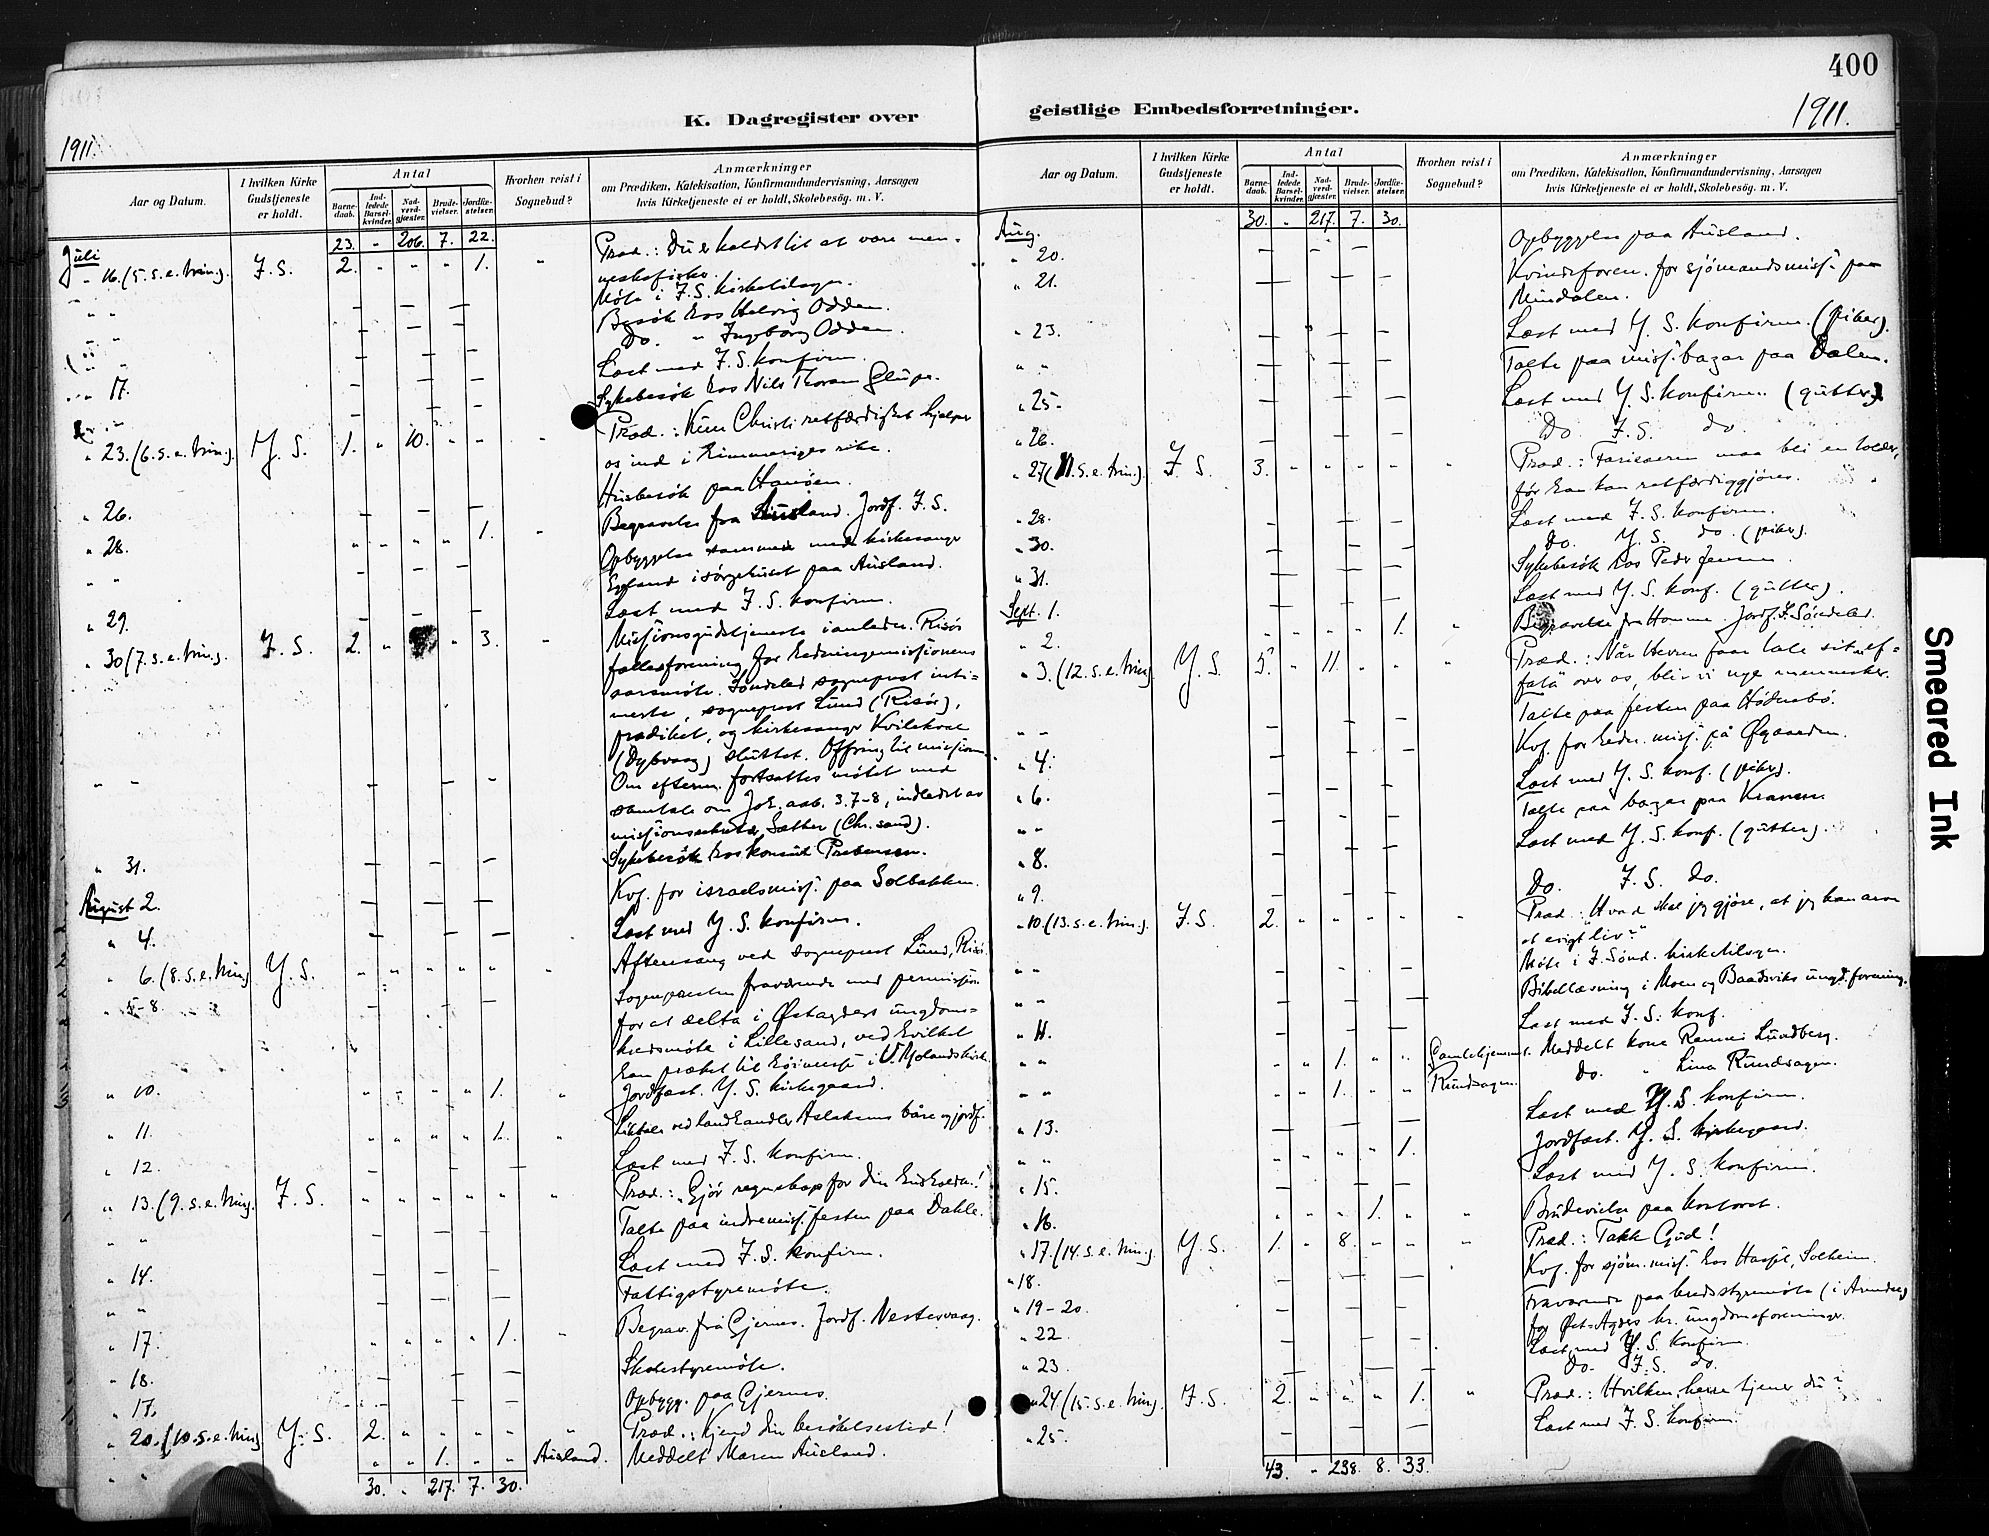 400
K. Dagregister over
geistlige Embedsforretninger.
1911.
1911.
Aar og Datum.
I hvilken Kirke Gudstjeneste er holdt.
Antal
Barne-daab.
Ind-ledede Barsel-kvinder.
Nad-verd-gjæster.
Brude-vielser.
Jordfæ-stelser.
Hvorhen reist i Sognebud?
Anmærkninger
om Prædiken, Katekisation, Konfirmandundervisning, Aarsagen
hvis Kirketjeneste ei er holdt, Skolebesøg. m. V.
23. " 206. 7. 22.
Juli
" 16. (5. s. e. trin.). F. S. 2. " " " 1. " Præd.: Du er kaldet til at være men-
neskefisker.
" " Møte i F. S. kirketilsyn.
Besøk hos Helvig Odden.
Do. " Ingeborg Odden.
Læst med F. S. konfirm.
" 17. Sykebesøk hos Nils Thorsen Glupe.
" 23. (6. s. e. trin.). Y. S. 1. " 10. " " " Præd.: Kun Christi retfærdighet hjelper
os ind i himmeriges rike.
" 26. Husbesøk paa
" 28. " " " " 1. " Begravelse fra Ausland. Jordf. F. S.
" " Opbyggelse sammen med kirkesanger
i sørgehuset paa Ausland.
" 29. Læst med F. S. konfirm.
" 30 (7. s. e. trin.). F. S. 2. " " 3. " Missionsgudstjeneste Risør
fællesforening for Hedningemissionens
aarsmøte. Søndeled sogneprest inti-
merte, sogneprest Lund (Risør),
prædiket, og kirkesanger
(Dybvaag) sluttet. Offring til missionen.
" " Om efterm. fortsattes møtet med
samtale om Joh. aab. 3. 7-8, indledet av
missionssekretær Sæther (Chr.sand).
" 31. Sykebesøk hos konsul Prebensen.
August 2. Kvf. for israelsmiss. paa Solbakken.
" 4. Læst med Y. S. konfirm.
" 6. (8. s. e. trin.) Y. S. " " " " " " Aftensang ved sogneprest Lund, Risør.
" 5-8. Sognepresten fraværende med permission
for at delta i Østagders ungdoms-
kredsmøte i Lillesand, ved hvilket
han prækte til høimesse i V. Molands kirke.
" 10. " " " " 1. " Jordfæst. Y. S. kirkegaard.
" 11. " " " " 1. " Liktale ved landhandler Aslaksens båre og jordf.
" 12. Læst med F. S. konfirm.
" 13. (9. s. e. trin.) F. S. " " " " " " Præd.: "Gjør regnskap for din husholdn.!"
" " Talte paa indremiss.festen paa Dahle.
" 14. Læst med F. S. konfirm.
" " Fattigstyremøte.
" 17. " " " " 1. " Begrav. frå Gjernes. Jordf. Nestesvaag.
" 18. Skolestyremøte.
" 17. Opbygg. paa Gjernes.
" 20. (10. s. e. trin) Y. S. 2. " " " " " Præd.: Kjend din besøkelsestid!
" " " " 1. " " Ausland. Meddelt Maren Ausland.
30. " 217. 7. 30.
Aar og Datum.
I hvilken Kirke Gudstjeneste er holdt.
Antal
Barne-daab.
Ind-ledede Barsel-kvinder.
Nad-verd-gjæster.
Brude-vielser.
Jordfæ-stelser.
Hvorhen reist i Sognebud?
Anmærkninger
om Prædiken, Katekisation, Konfirmandundervisning, Aarsagen
hvis Kirketjeneste ei er holdt, Skolebesög. m. V.
30. " 217. 7. 30.
Aug.
" 20. Opbyggelse paa Ausland.
" 21. Kvindeforen. for sjömandsmiss. paa
Mindalen.
" 23. Læst med Y. S. konfirm. (piker).
" " Talte paa miss. bazar paa Dalen.
" 25. Læst med Y. S. konfirm. (gutter).
" 26. Do F. S. do.
" 27. (11. s. e. trin.) F. S. 3. " " " " " Præd.: Fariseeren maa bli en tolder,
før han kan retfærdiggjøres.
" 28. Læst med F. S. konfirm.
" 30. Do. Y. S. do. (piker).
" 31. Sykebesøk hos Peder Jensen
Sept. 1. Læst med Y. S. konf. (gutter).
" 2. " " " " 1. " Begravelse fra Homme. Jordf. F. Söndeled.
" 3. (12. s. e. trin) Y. S. 5. " 11. " " " Præd.: Når Herren faar tale sit "ef-
fata" over os, blir vi nye mennesker.
" " Talte paa festen paa Hødnebö.
" 4. Kvf. for hedn. miss. på Øygaarden.
" 6. Læst med Y. S. konf. (piker).
" " Talte paa bazar paa Kranen
" 8. Læst med Y. S. konf. (gutter).
" 9. Do. F. S. do.
" 10. (13. s. e. trin.) F. S. 2. " " " " " Præd.: "Hvad skal jeg gjøre, at jeg kan arve
et evigt liv?"
" " Møte i F. Sønd. kirketilsyn.
" " Bibellæsning i Moen og Baadsviks ungd.forening.
" 11. Læst med F. S. konf.
" " " " 1. " " Gamlehjemmet. Meddelt kone Lundberg.
" " " " 1. " " Rundsagen. Do. " Lina Rundsagen.
" 13. Læst med Y. S. konfirm.
" " " " " " 1. Jordfæst. Y. S. kirkegaard.
" 15. Læst med Y. S. konfirm.
" 16. " " " 1. " " Brudevielse paa kontoret.
" 17. (14. s. e. trin.) Y. S. 1. " 8. " " " Præd.: Takk Gud!
" 18. Kvf. for sjöm. miss. hos Solheim.
" 19-20. Fraværende paa kredsstyremøte (i Arendal)
for Øst-Agder kr. ungdomsforeninger.
" 22. Læst med Y. S. konfirm.
" 23. Do. F. S. do.
" 24 (15. s. e. trin.). F. S. 2. " " " 1. " Præd.: Hvilken herre tjener du?
" 25. Læst med F. S. konfirm.
43. " 238. 8. 33.
Smeared Ink